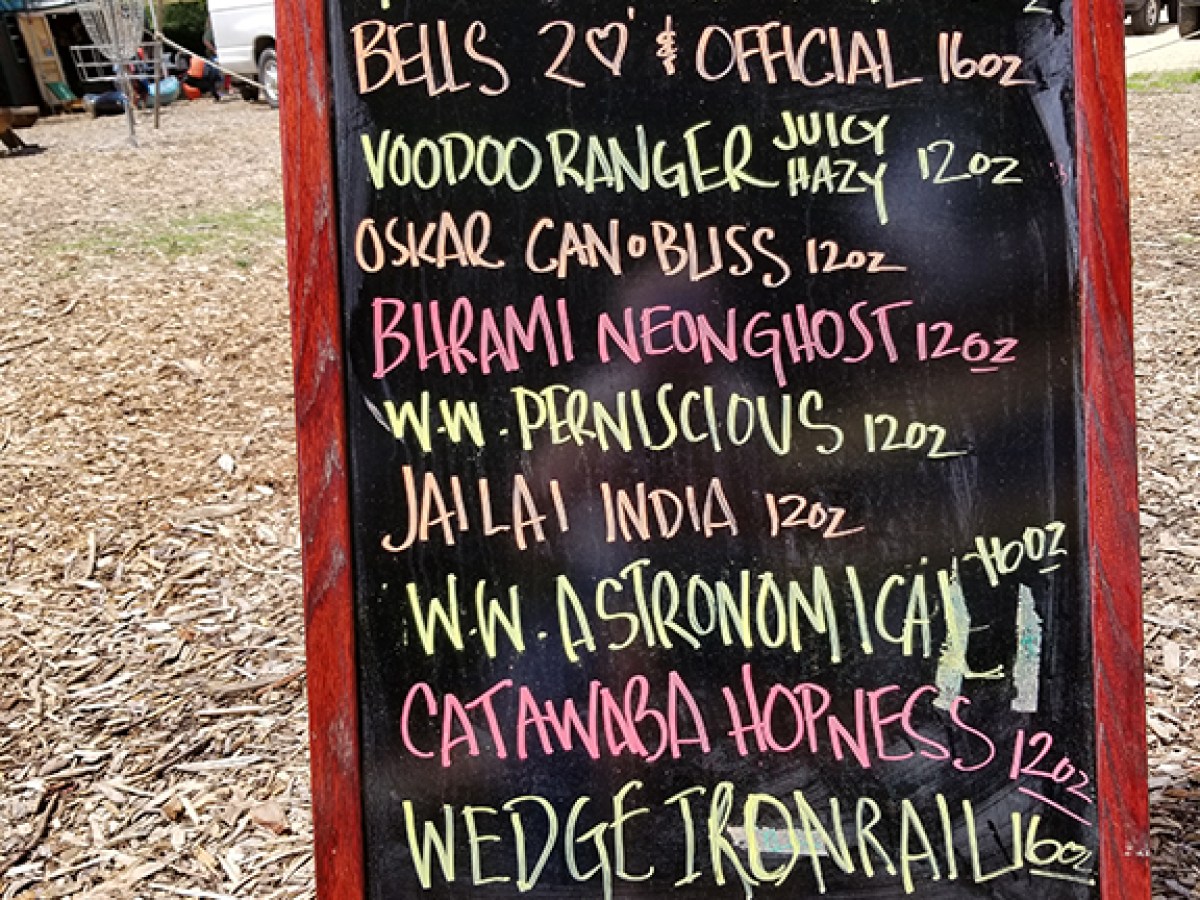 BELLS 2♡' & OFFICIAL 16oz
VOODOO RANGER JUICY HAZY 12oz
OSKAR CAN•O•BLISS 12oz
BHRAMI NEON GHOST 12oz
W.W. PERNISCIOUS 12oz
JAILAI INDIA 12oz
W.W. ASTRONOMICAL 16oz
CATAWABA HOPNESS 12oz
WEDGE IRONRAIL 16oz